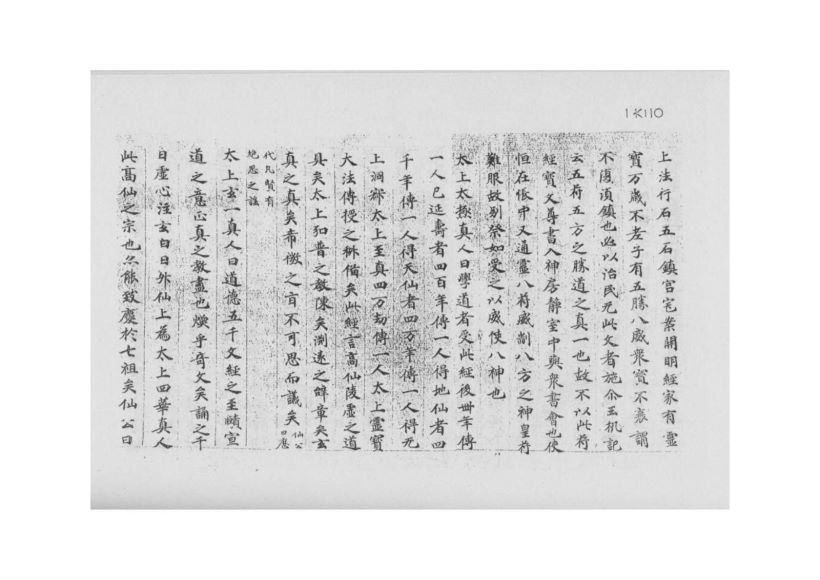 大K110
上法行石五石鎮宮宅案開明經家有靈
寶万歲不差子有五勝八威眾寶不衰謂
不復須鎮也必以治民无此文者施介玉机記
云五符五方之勝道之真一也故不以此符
經寶又尊書入神房静室中與眾書會也使
恒在帳中又通靈八符威制八方之神皇符
難服故別祭如受之以威使八神也
太上太極真人曰學道者受此經後卌年傳
一人已延壽者四百年傳一人得地仙者四
千年傳一人得天仙者四万年傳一人得无
上洞寂太上至真四万劫傳一人太上靈寶
大法傳授之科備矣此經言高仙陵虛之道
具矣太上和普之教陳矣測遠之辞章矣玄
真之真矣希微之言不可思而議矣仙公曰應
代凡賢有
絕思之議
太上玄一真人曰道德五千文經之至賾宣
道之意正真之教盡也煥乎奇文矣誦之千
日虛心注玄白日外仙上為太上四華真人
此高仙之宗也亦能致慶於七祖矣仙公曰